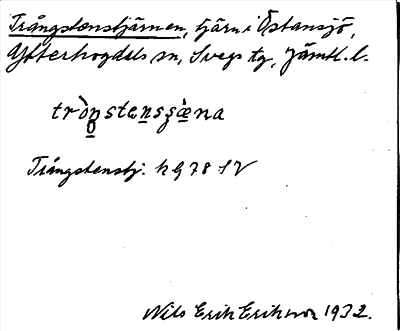 Trångstenstjärnen, tjärn i Östansjö,
Ytterhogdals sn, Svegs tg, Jämtl. l.
Trångstenstj: kg 78 SV
Nils Erik Eriksson 1932.